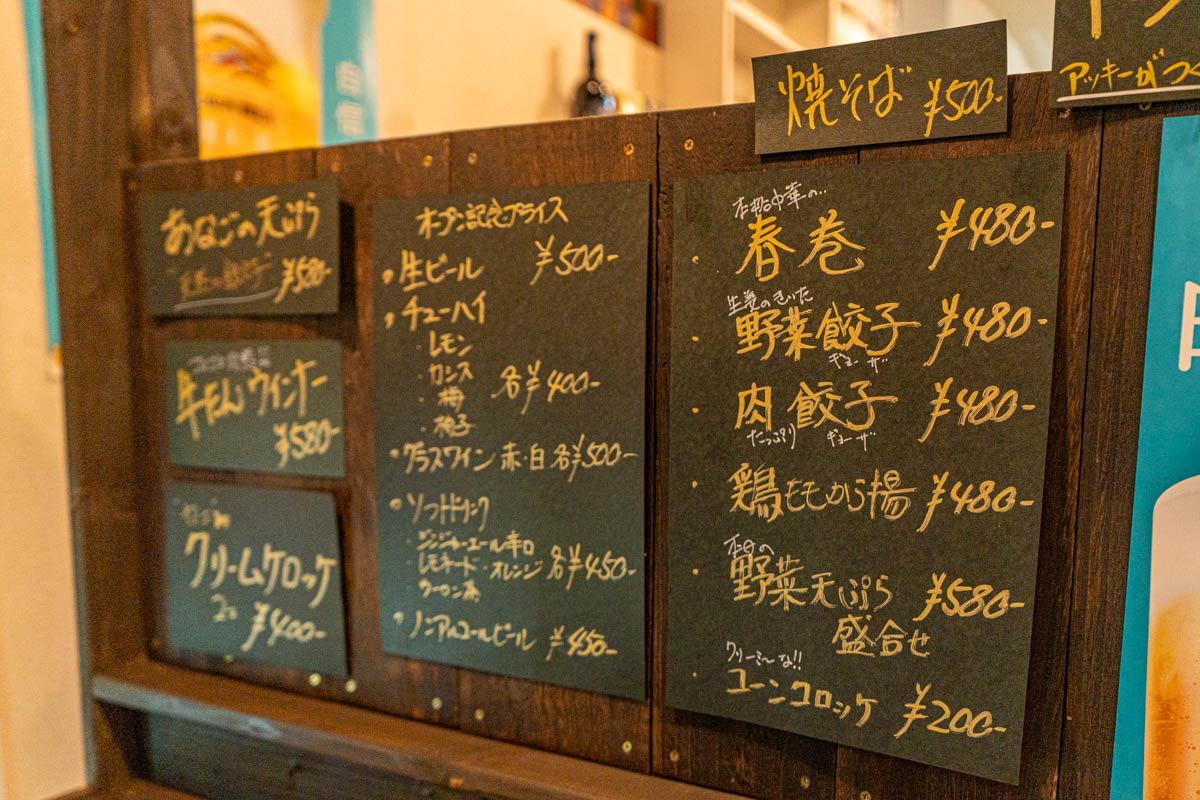 自信
焼そば ¥500-
アッキーがつく
あなごの天ぷら
¥580-
牛たんウィンナー
¥580-
クリームケロッケ
2コ ¥400-
オープン記念プライス
生ビール ¥500-
チューハイ
・レモン
・カシス 各¥400-
・梅
・柚子
グラスワイン 赤・白 各¥500-
ソフトドリンク
・ジンジャーエール辛口
・レモネード・オレンジ 各¥450-
・ウーロン茶
ノンアルコールビール ¥450-
本格中華の..
春巻 ¥480-
生姜のきいた
野菜餃子 ¥480-
ギョーザ
肉餃子 ¥480-
たっぷり ギョーザ
鶏ももから揚 ¥480-
本日の
野菜天ぷら ¥580-
盛合せ
クリーミーな!!
コーンコロッケ ¥200-